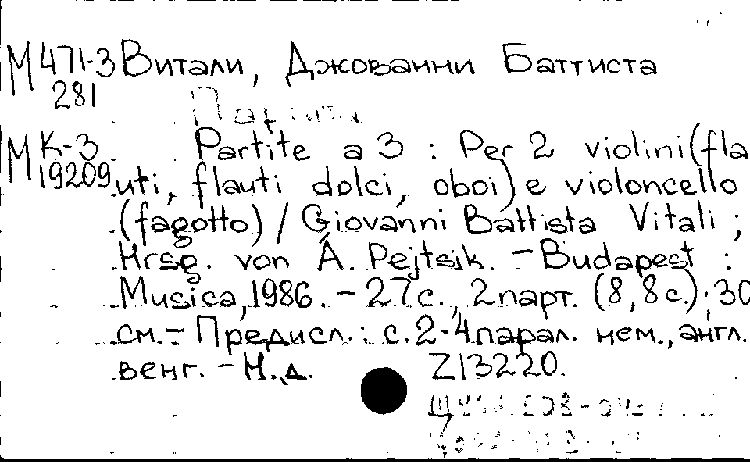 М 471-3 Витали, Джованни Баттиста
281
Партита
М К-3 Partite a 3 : Per 2 violini (fla
19209 uti, flauti dolci, oboi) e violoncello
(fagotto) / Giovanni Battista Vitali ;
Hrsg. von Á. Pejtsik. - Budapest :
Musica, 1986. - 27 с., 2 парт. (8, 8 с.); 30
см. - Предисл.: с. 2-4 парал. нем., англ.
венг. - Н.д. Z13220.